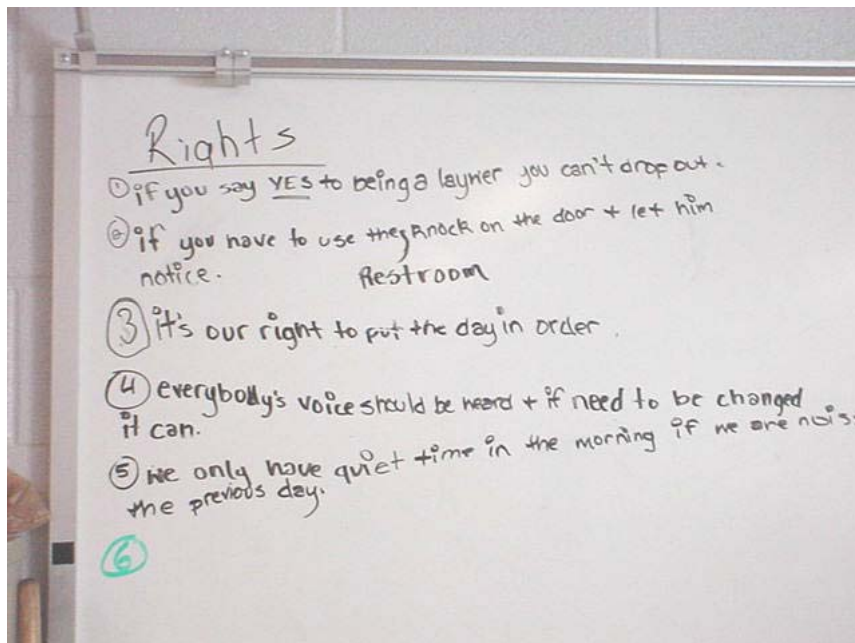 Rights
① if you say YES to being a laywer you can't drop out.
② if you have to use they knock on the door + let him
notice. Restroom
③ it's our right to put the day in order.
④ everybody's voice should be heard + if need to be changed
it can.
⑤ we only have quiet time in the morning if we are nois
the previous day.
⑥